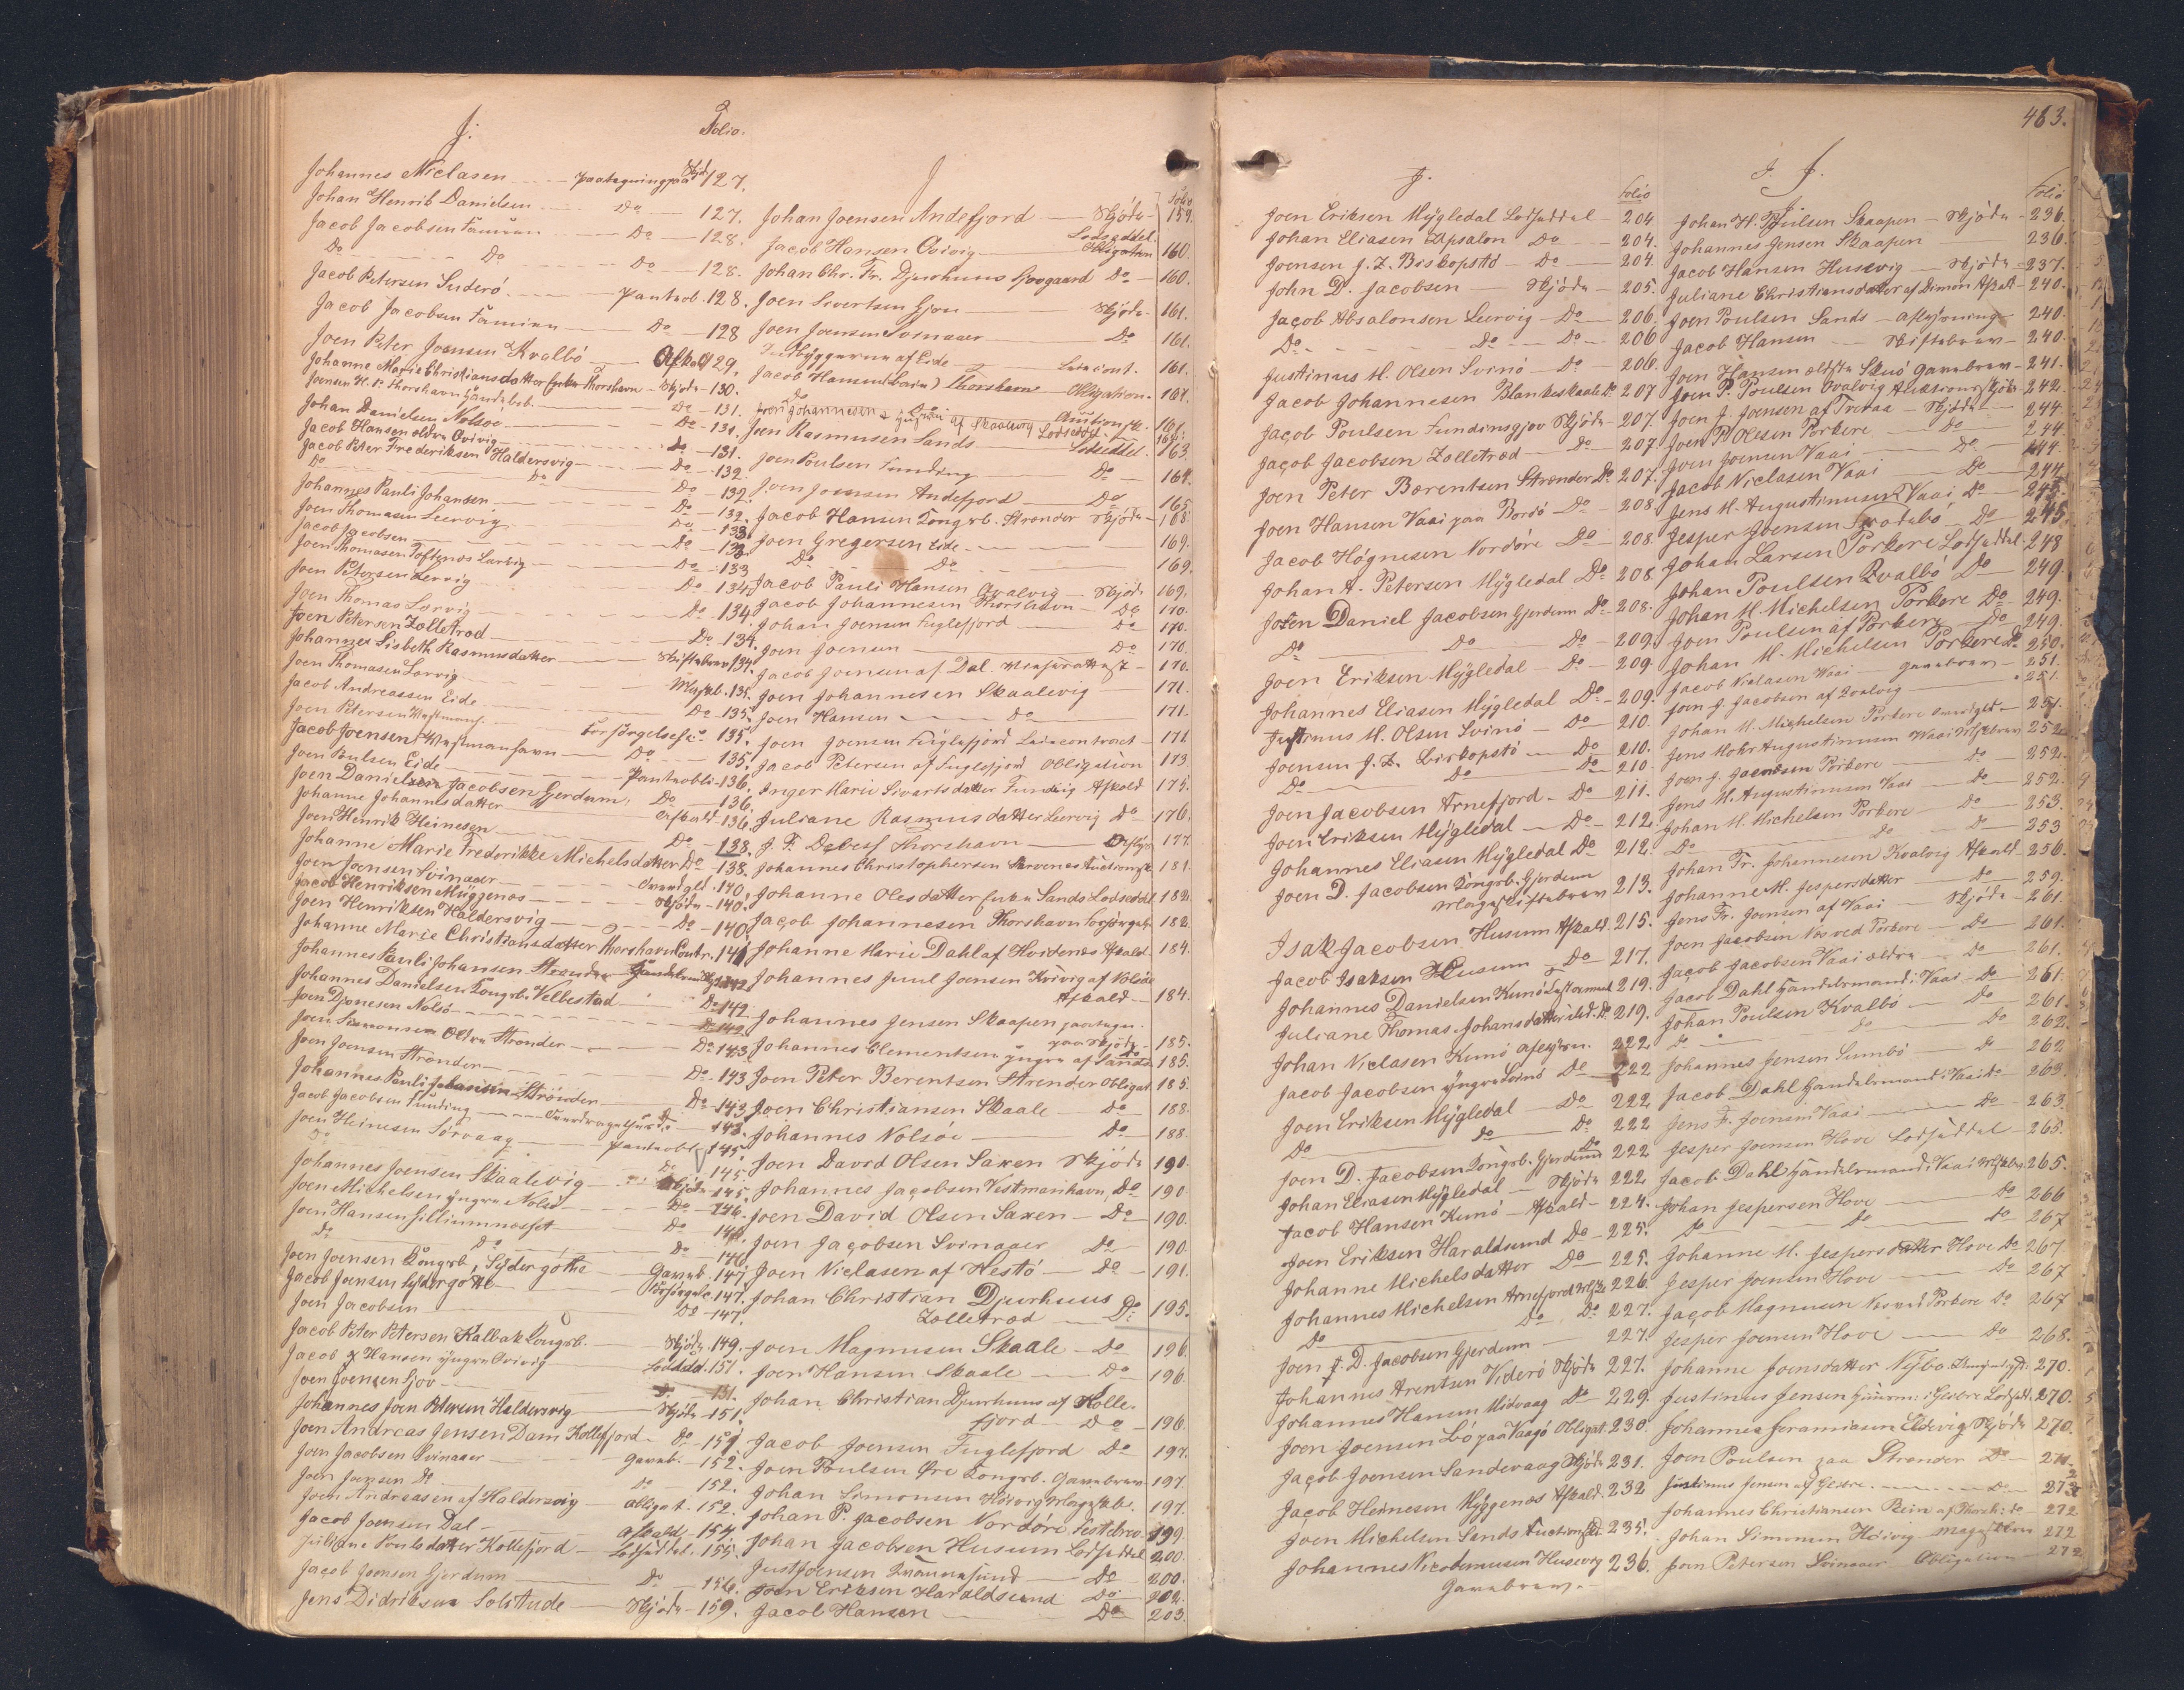 J. Folio.
Johannes Niclasen paategning paa Skjød 127.
Johan Henrik Danielsen Do 127.
Jacob Jacobsen Famien Do 128.
Do Do Do 128.
Jacob Petersen Suderö Panteob. 128.
Jacob Jacobsen Famien Do 128
Joen Peter Joensen Kvalbö Afkald 129.
Johanne Marie Christiansdatter Thorshavn Skjøde 130.
Joensen H. P. Thorshavn Do 131.
Johan Danielsen Nolsöe Do 131.
Jacob Hansen ældre Qvivig Do 131.
Jacob Peter Frederiksen Haldersvig Do 132.
Do Do Do 132.
Johannes Pauli Johansen Do 132.
Joen Thomasen Leervig Do 133.
Jacob Jacobsen Do 133.
Joen Thomasen Toftenæs Lervig Do 133
Joen Petersen Lervig Do 134
Joen Thomas Lervig Do 134.
Joen Petersen Zolletrød Do 134.
Johanne Lisbeth Rasmusdatter Skiftebrev 134.
Joen Thomasen Lervig Magesk. 135.
Jacob Andreassen Eide Do 135.
Joen Petersen Vestmanh. Forsørgelsesc. 135.
Jacob Joensen Vestmanhavn Do 135.
Joen Poulsen Eide Panteobli 136.
Joen Danielsen Jacobsen Gjerdum Do 136.
Johanne Johannesdatter Afkald 136.
Joen Henrik Heinesen Do 138.
Johanne Marie Frederikke Michelsdatter Do 138.
Joen Joensen Svinaaer 140.
Jacob Henriksen Myggenæs Skjøde 140.
Joen Henriksen Haldersvig Do 140.
Johanne Marie Christiansdatter Thorshavn Contr. 141
Johannes Pauli Johansen Strender 142
Johannes Danielsen Kongsb. Velbestad Do 142
Joen Djonesen Nolsö Do 142.
Joen Simonsen Oldre Strender Do 143
Joen Joensen Strender Do 143
Johannes Pauli Johansen Strönder Do 143
Jacob Jacobsen Funding 143.
Joen Heinesen Sörvaag Pantobl. 145.
Do Do 145.
Johannes Joensen Skaalevig Skjøde 145.
Joen Michelsen yngre Nolsö Do 146.
Joen Hansen Gilliumnæsset Do 146.
Do Do Do 146
Joen Joensen Kongsb. Sydergöthe Gaveb. 147
Jacob Joensen Sydergöthe Forsørgelsc. 147.
Joen Jacobsen Do 147.
Jacob Peter Petersen Kalbak Kongsb. Skjøde 149.
Jacob Hansen yngre Qvivig Lodsedd. 151.
Joen Joensen Gjov Do 151.
Johannes Joen Petersen Haldersvig Skjøde 151.
Joen Andreas Jensen Dam Kollefjord Do 151
Joen Jacobsen Svinaaer Gaveb. 152.
Joen Joensen Do Do 152.
Joen Andreasen af Haldersvig Obligat. 152.
Jacob Joensen Dal Afkald 154.
Juliane Poulsdatter Kollefjord Lodseddel. 155.
Jacob Joensen Gjerdum Do 156.
Jens Didriksen Solitude Skjøde 159.
J Folio
Johan Joensen Andefjord Skjøde 159.
Jacob Hansen Qvivig Lodseddel Obligation 160.
Johan Chr. Fr. Djurhuus Gjoogaard Do 160.
Joen Sivertsen Gjov Skjøde 161.
Joen Joensen Svinaaer Do 161.
Indbyggerne af Eide Leiecont. 161.
Jacob Hansen (Leire) Thorshavn Obligation 161.
Joen Johannesen & Joen yngre af Skaalevig Auktionssk. 161.
Joen Rasmusen Sands Lodseddel 163
Joen Poulsen Funding Do 164.
Joen Joensen Andefjord Do 165
Jacob Hansen Kongsb. Strender Skjøde 168.
Joen Gregersen Eide 169.
Do Do 169.
Jacob Pauli Hansen Qvalvig Skjøde 169.
Jacob Johannesen Thorshavn Do 170.
Johan Joensen Fuglefjord Do 170.
Joen Joensen Do 170
Jacob Joensen af Dal 170.
Joen Johannesen Skaalevig 171.
Joen Hansen Do 171.
Joen Joensen Fuglefjord Leiecontract 171
Jacob Petersen af Fuglefjord Obligation 173.
Inger Marie Sivartsdatter Funding Afkald 175.
Juliane Rasmusdatter Leervig Do 176.
J. F. Debess Thorshavn 177.
Johannes Christophersen Auctionssk 181.
Johanne Olesdatter Enke Sands Lodseddel 182.
Jacob Johannesen Thorshavn Forsörgels. 182.
Johanne Marie Dahl af Hvidenæs Afkald 184.
Johannes Juul Joensen Kvivig af Nolsöe Afkald 184.
Johannes Jensen Skaapen paategn. paa Skjøde 185.
Johannes Clementsen yngre af Sands 185.
Joen Peter Berentsen Strender Obligat. 185.
Joen Christiansen Skaale Do 188.
Johannes Nolsöe Do 188.
Joen David Olsen Saxen Skjøde 190.
Johannes Jacobsen Vestmanhavn Do 190.
Joen David Olsen Saxen Do 190.
Joen Jacobsen Svinaaer Do 190.
Joen Niclasen af Hestö Do 191.
Johan Christian Djurhuus Zolletrød Do 195.
Joen Magnusen Skaale Do 196.
Joen Hansen Skaale Do 196.
Johan Christian Djurhuus af Kollefjord Do 196.
Jacob Joensen Fuglefjord Do 197.
Joen Poulsen Øre Kongsb. Gavebrev 197.
Johan Simonsen Hoivig Mageskb. 197.
Johan P. Jacobsen Nordöre Festebrev 199
Johan Jacobsen Husum Lodseddel 200.
Just Joensen Kvannesund Do 200.
Joen Eriksen Haraldsund Do 202.
Jacob Hansen Do 203.
463.
J. Folio
Joen Eriksen Mygledal Lodseddel 204.
Johan Eliasen Apsalon Do 204.
Joensen J. Z. Biskopstö Do 204.
John D. Jacobsen Skjøde 205.
Jacob Absalonsen Leervig Do 206.
Do Do Do 206
Justinus M. Olsen Svinö Do 206.
Jacob Johannesen Blankeskaale Do 207
Jacob Poulsen Fundinsgjov Skjøde 207.
Jacob Jacobsen Zolletrød Do 207
Joen Peter Bærentsen Strænder Do 207.
Joen Hansen Vaai paa Bordö Do 208
Jacob Högnesen Nordöre Do 208.
Johan A. Petersen Mygledal Do 208.
Joen Daniel Jacobsen Gjerdum Do 208.
Do Do Do 209.
Joen Eriksen Mygledal Do 209.
Johannes Eliasen Mygledal Do 209.
Justinus M. Olsen Svinö Do 210.
Joensen J. Z. Biskopstö Do 210.
Do Do Do 210
Joen Jacobsen Arnefjord Do 211.
Joen Eriksen Mygledal Do 212.
Johannes Eliasen Mygledal Do 212.
Joen D. Jacobsen Kongsb. Gjerdum Mageskiftebrev 213.
Isak Jacobsen Husum Afkald 215.
Jacob Isaksen Husum Do 217.
Johannes Danielsen Kunö 219.
Juliane Thomas Johansdatter Do 219.
Johan Niclasen Kunö 222
Jacob Jacobsen yngre Svinö Do 222
Joen Eriksen Mygledal Do 222
Do Do Do 222
Joen D. Jacobsen Kongsb. Gjerdum Do 222
Johan Eliasen Mygledal Skjøde 222.
Jacob Hansen Kunö Afkald 224.
Joen Eriksen Haraldsund Do 225.
Johanne Michelsdatter Do 225.
Johannes Michelsen Arnefjord 226.
Do Do Do 227.
Joen J. D. Jacobsen Gjerdum 227.
Johannes Arentsen Viderö Skjöde 227.
Johannes Hansen Midvaag Do 229.
Joen Joensen Bö paa Vaagö Obligat. 230.
Jacob Joensen Sandevaag Skjøde 231.
Jacob Heinesen Myggenæs Afkald 232
Joen Michelsen Sands Auctionssk. 235.
Johannes Nicodemusen Husevig 236.
Gavebrev.
J. J. Folio
Johan H. Poulsen Skaapen Skjøde 236.
Johannes Jensen Skaapen 236.
Jacob Hansen Husevig Skjøde 237.
Juliane Christiansdatter af Dimon Afkald 240.
Joen Poulsen Sands aflysning 240.
Jacob Hansen Skiftebrev 240.
Joen Hansen ældste Skuö Gavebrev 241.
Joen P. Poulsen Qvalvig Auktionsskjøde 242.
Joen J. Joensen af Tveraa Skjøde 244.
Joen P. Olesen Porkere Do 244
Joen Joensen Vaai Do 244.
Jacob Niclasen Vaai Do 244
Jens M. Augustinusen Vaai Do 245.
Jesper Joensen Frodebö Do 245
Johan Larsen Porkere Lodseddel 248
Johan Poulsen Kvalbö Do 249
Johan M. Michelsen Porkere Do 249.
Joen Poulsen af Porkere Do 249.
Johan M. Michelsen Porkere Do 250.
Jacob Niclasen Vaai Gavebrev 251.
Joen J. Jacobsen af Qvalvig 251.
Johan M. Michelsen Porkere 251.
Jens Mohr Augustinusen Vaai 252
Joen J. Jacobsen Porkere Do 252.
Jens M. Augustinusen Vaai Do 252.
Johan M. Michelsen Porkere Do 253.
Do Do Do 253
Johan Fr. Johannesen Kvalvig Afkald 256.
Johanne M. Jespersdatter Do 259.
Jens Fr. Joensen af Vaai Skjøde 261.
Joen Jacobsen Næs ved Porkere Do 261.
Jacob Jacobsen Vaai ældre Do 261.
Jacob Dahl Handelsmand i Vaai Do 261.
Johan Poulsen Kvalbö Do 261.
Do Do Do 262.
Johannes Jensen Sumbö Do 262
Jacob Dahl Handelsmand i Vaai Do 263.
Jens F. Joensen Vaai Do 263.
Jesper Joensen Hove Lodseddel 265.
Jacob Dahl Handelsmand i Vaai 265.
Johan Jespersen Hove Do 266
Do Do Do 267
Johanne M. Jespersdatter Hove Do 267
Jesper Joensen Hove Do 267
Jacob Magnusen Næs ved Porkere Do 267
Jesper Joensen Hove Do 268.
Johanne Joensdatter Nejbo 270.
Justinus Jensen i Gejtre Lodsed. 270.
Johannes Jeremiasen Eldevig Skjøde 270.
Joen Poulsen paa Strender Do 271.
Justinus Jensen af Gejtre Do 272
Johannes Christiansen Rein af Thorsh. Do 272
Johan Simonsen Hoivig 272
Joen Petersen Svinaaer Obligation 272